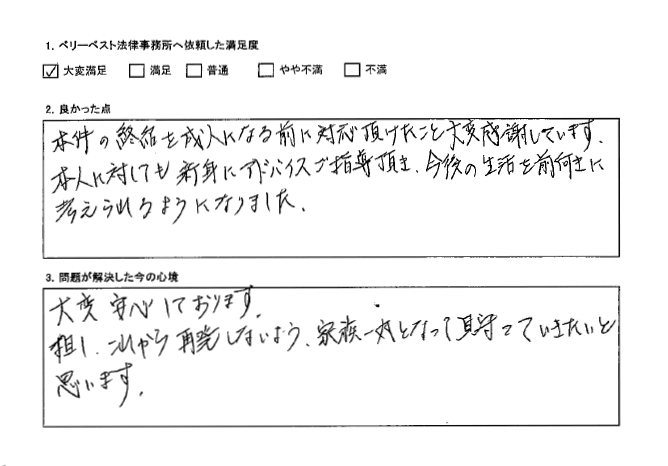 1. ベリーベスト法律事務所へ依頼した満足度
☑ 大変満足 □ 満足 □ 普通 □ やや不満 □ 不満
2. 良かった点
本件の終結を成人になる前に対応頂けたこと大変感謝しています。
本人に対しても親身にアドバイスご指導頂き、今後の生活を前向きに
考えられるようになりました。
3. 問題が解決した今の心境
大変安心しております。
担し、これから再発しないよう、家族一丸となって見守っていきたいと
思います。